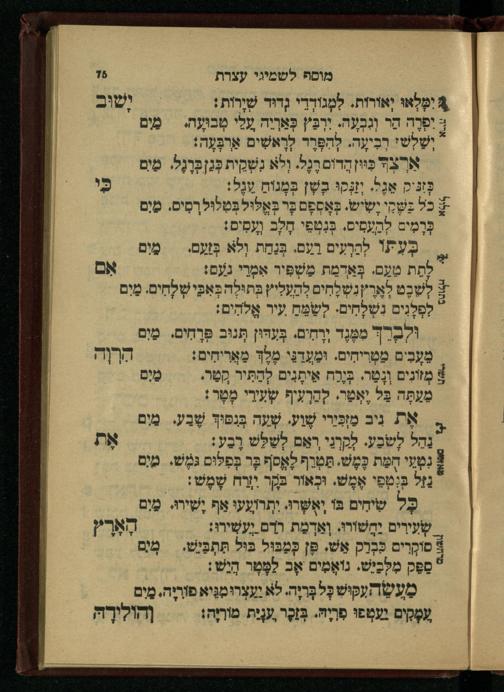 75 מוסף לשמיני עצרת
ימלאו יאורות. למגודדי גדוד שירות: ישוב
יפרה הר וגבעה. ירבץ כאריה עלי טבועה. מים
ושלשי רביעה. להפרד לראשים ארבעה:
ארצך כוון הדום רגל. ולא נשקית כגן ברגל. מים
כזניק אגל. יזנקו בשן במנוח עגל: כי
כל בשקי ישיש. כאספם בר באלול בטלול רסים. מים
כרמים להעסים. בנטפי חלב ועסים:
בעתו להרעים רעם. בנחת ולא בזעם. מים
לתת טעם. באדמת משפיר אמרי נעם: אם
לשבט לארץ נשלחים להעליץ בתולה באבי שלחים. מים
לפלגים נשלחים. לשמח עיר אלהים:
ולברך ממגד ירחים. בעדון תנוב פרחים. מים
מעבים מטריחים. ומעדני מלך מאריחים: הרוה
מזונים ונטר. בירח איתנים להתיר קטר. מים
מעתה בל יאטר. להרעיף שעירי מטר:
את ניב מזכירי שוע. שעה בנסוך שבע. מים
נהל לשבע. לקרני ראם לשלש רבע: את
נטעי חמת כמש. תטרף לאסף בר בפלוס גמש. מים
נזל בנטפי אמש. וכאור בקר יזרח שמש:
כל שיחים בו יאשרו. יתרועעו אף ישירו. מים
שעירים יחשורו. ואדמת רדם יעשירו: הארץ
סוקרים כברק אש. פן כמבול בול תתבייש. מים
ספק מלבייש. נואמים אב למטר היש:
מעשה עקוש כל בריה. לא יעצרו מגיא פוריה. מים
עמקים יעטפו פריה. בזכר ענית מוריה: והולידה
אריה
אלול
בתולה
תשרי
מאזנים
מרחשון